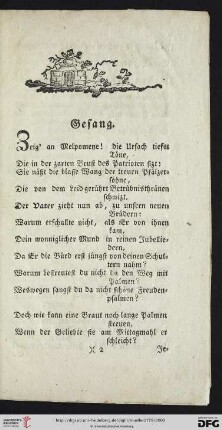 Gesang.
Zeig' an Melpomene! die Ursach tiefer
Töne,
Die in der zarten Brust des Patrioten sizt:
Sie näßt die blasse Wang der treuen Pfälzer-
söhne,
Die von dem leidgerührt Betrübnißthränen
schwizt.
Der Vater zieht nun ab, zu unsern neuen
Brüdern:
Warum erschallte nicht, als Er von ihnen
kam,
Dein wonniglicher Mund in reinen Jubellie-
dern,
Da Er die Bürd erst jüngst von deinen Schul-
tern nahm?
Warum bestreutest du nicht da den Weg mit
Palmen?
Weswegen sangst du da nicht schöne Freuden-
psalmen?
Doch wie kann eine Braut noch lange Palmen
streuen,
Wenn der Geliebte sie am Mittagmahl er
schleicht?
)( 2 Je-
DFG